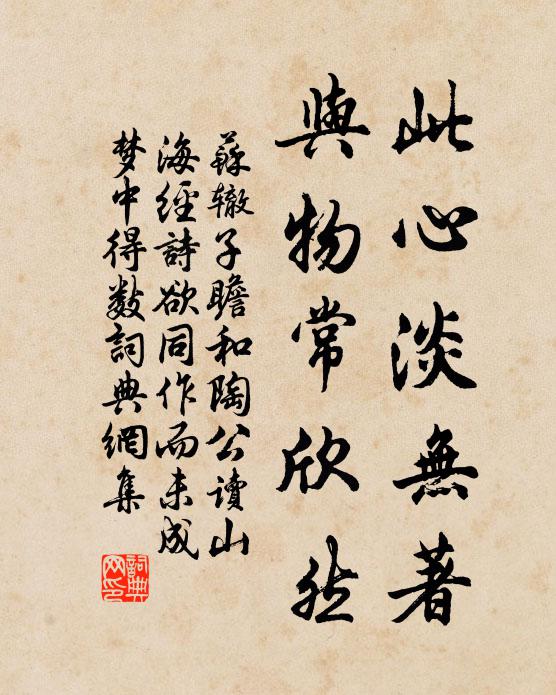 此心淡無著
與物常欣然
蘇辙子瞻和陶公讀山
海經詩欲同作而未成
梦中得数詞典網集
詞典
网印